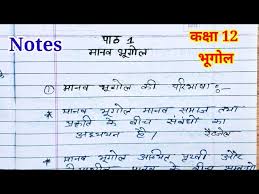 Notes
कक्षा 12
भूगोल
पाठ 1
मानव भूगोल
① मानव भूगोल की परिभाषा:-
* मानव भूगोल मानव समाज तथा
प्रकृति के बीच संबंधों का
अध्ययन है। रैटजेल
* मानव भूगोल अस्थिर पृथ्वी और
के बीच